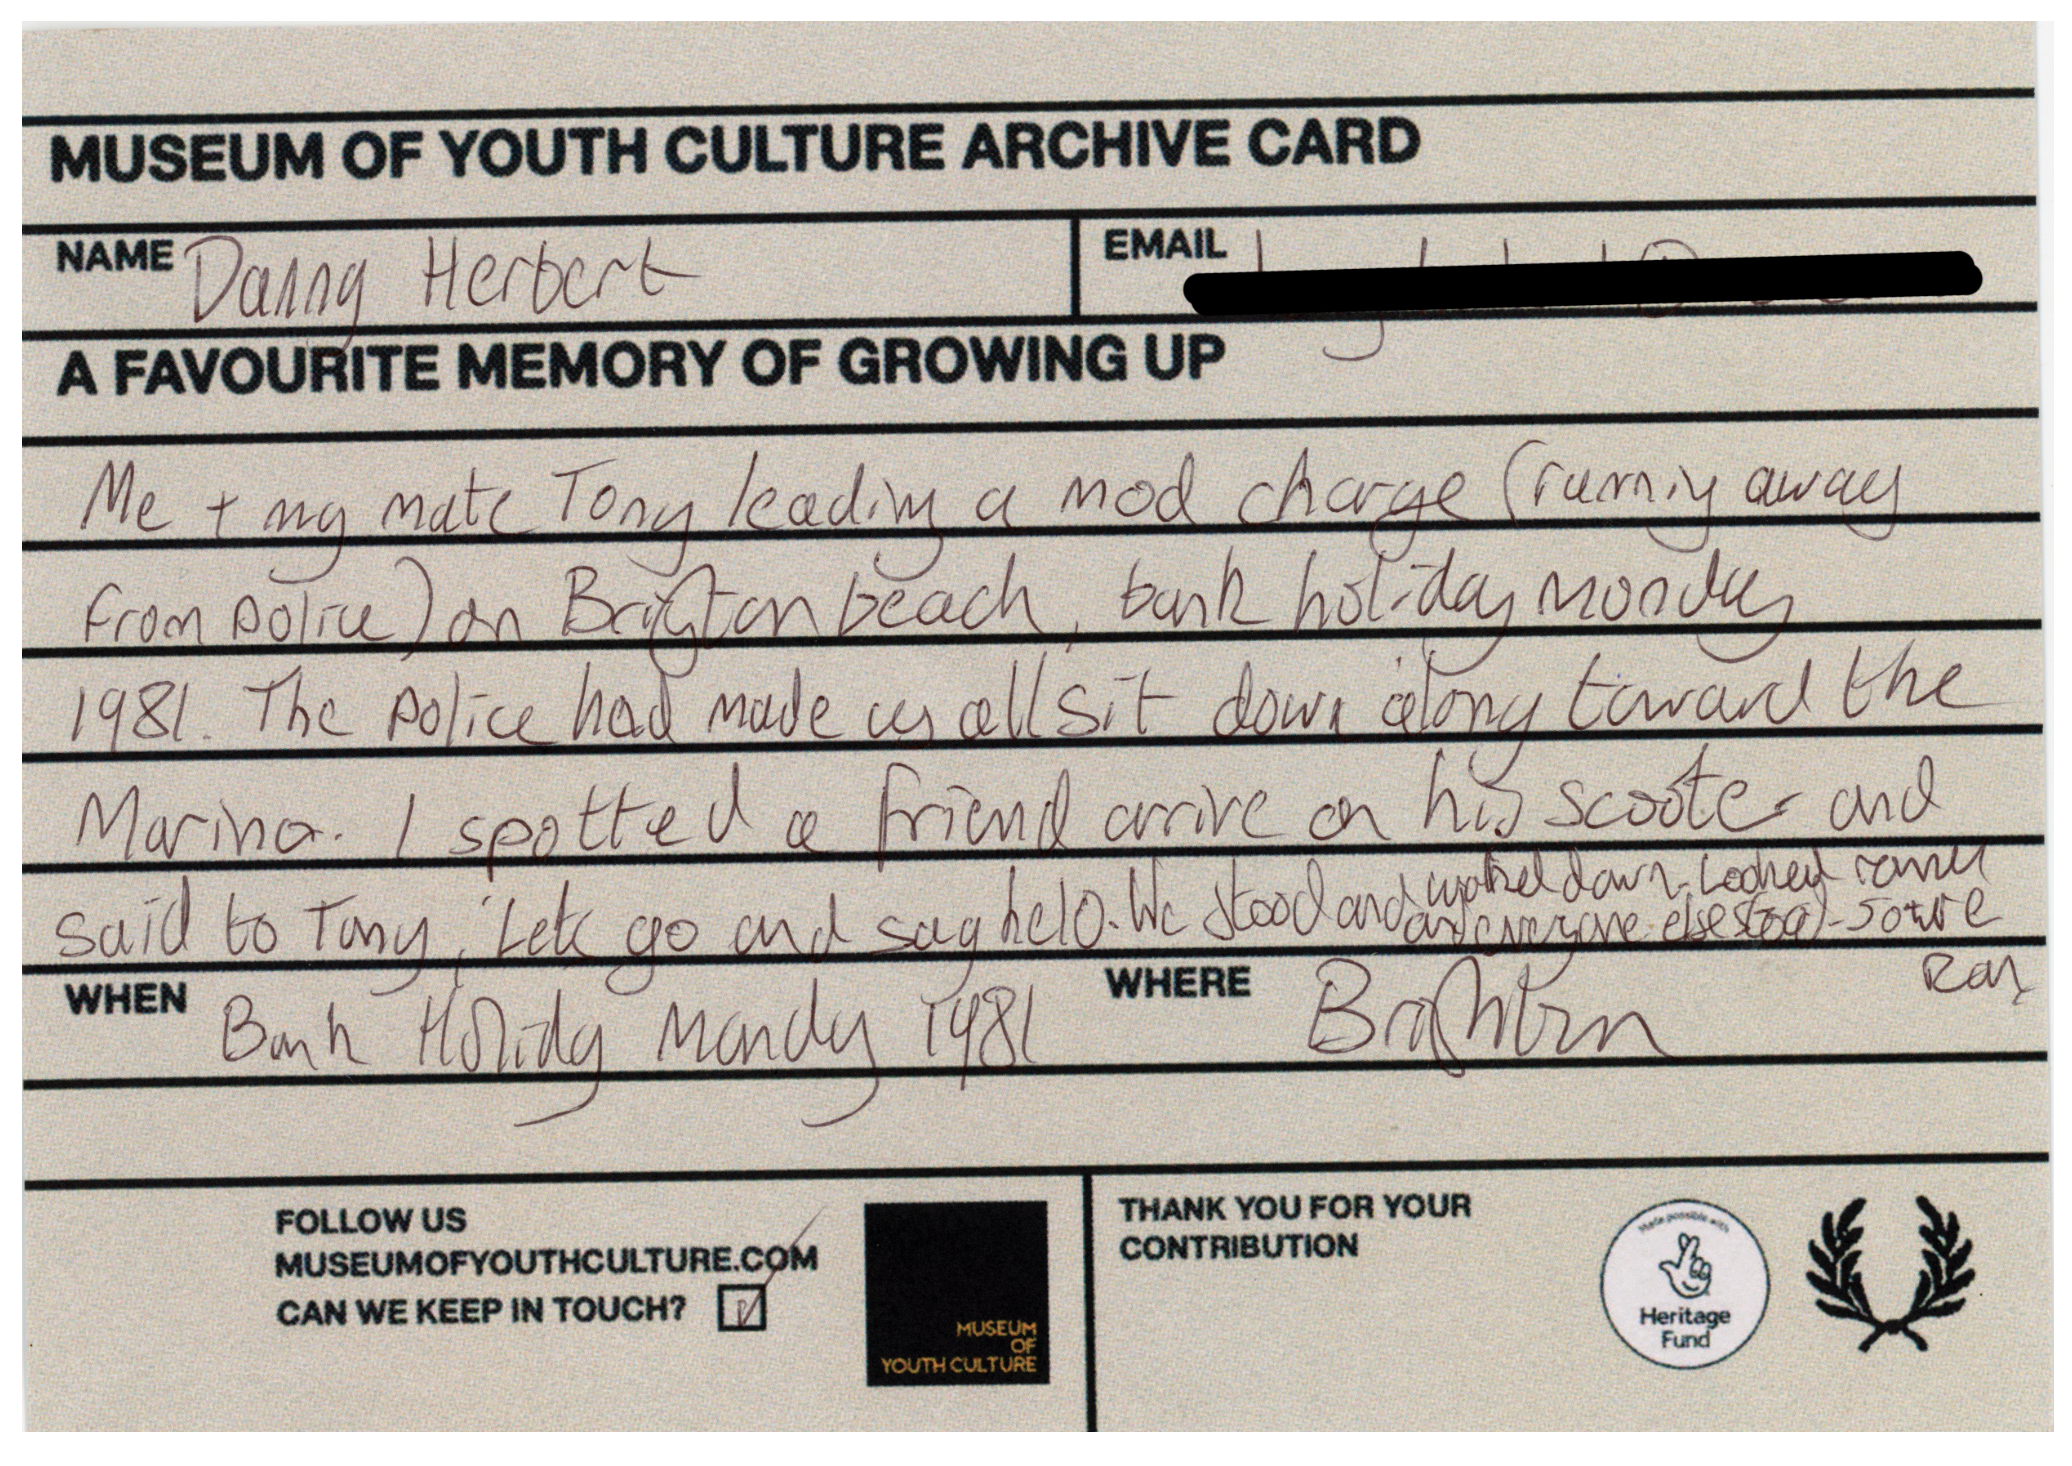 MUSEUM OF YOUTH CULTURE ARCHIVE CARD
NAME Danny Herbert
EMAIL
A FAVOURITE MEMORY OF GROWING UP
Me + my mate Tony leading a mod charge (running away
from police) on Brighton beach, bank holiday monday
1981. The police had made us all sit down along toward the
Marina. I spotted a friend arrive on his scooter and
said to Tony, 'Lets go and say helo. We stood and walked down. Looked round
and everyone else stood - so we
ran
WHEN Bank Holiday Monday 1981
WHERE Brighton
FOLLOW US
MUSEUMOFYOUTHCULTURE.COM
CAN WE KEEP IN TOUCH?
MUSEUM
OF
YOUTH CULTURE
THANK YOU FOR YOUR
CONTRIBUTION
Made possible with
Heritage
Fund